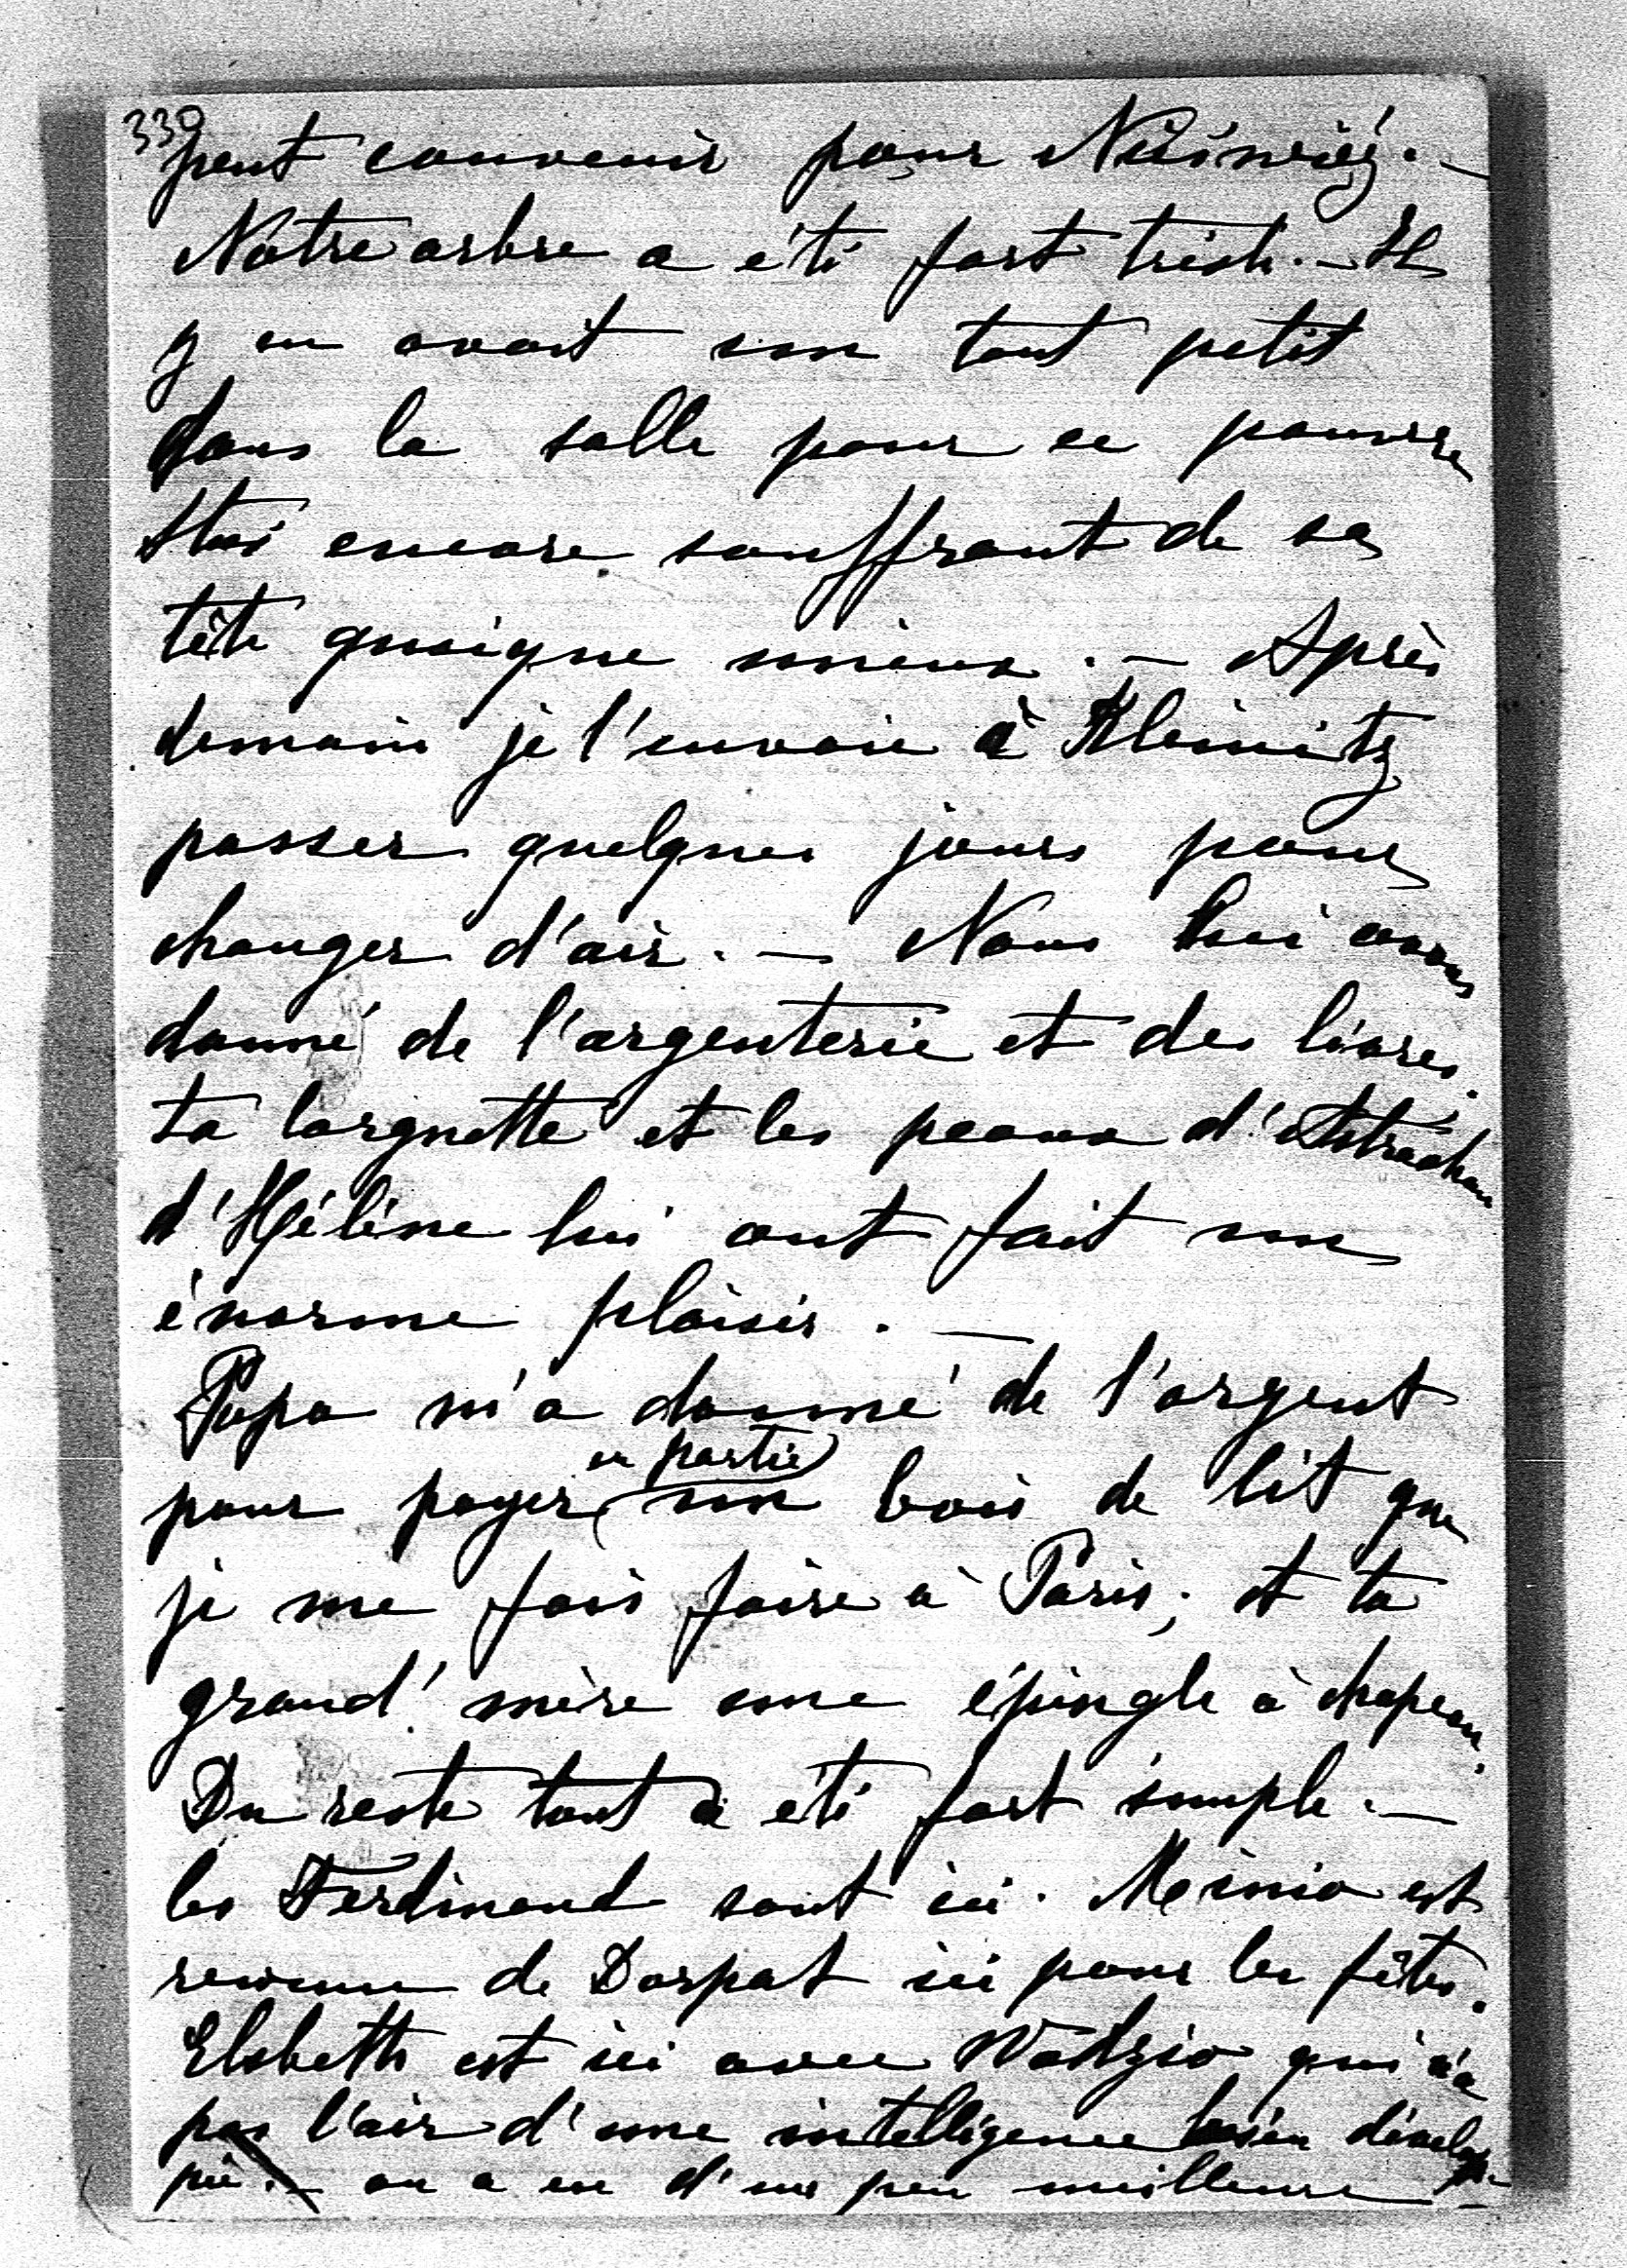 330
peut convenir pour Nieśwież. —
Notre arbre a été fort triste. — Il
y en avait un tout petit
dans la salle pour ce pauvre
Stas encore souffrant de sa
tête quoique mieux. — Après
demain je l'envoie à Kleinitz
passer quelques jours pour
changer d'air. — Nous lui avons
donné de l'argenterie et des livres.
ta lorgnette et les peaux d'Astrachan
d'Hélène lui ont fait un
énorme plaisir. —
Papa m'a donné de l'argent
en partie
pour payer un bois de lit que
je me fais faire à Paris; et ta
grand'mère une épingle à chapeau.
Du reste tout a été fort simple. —
les Ferdinand sont ici. Minio est
revenu de Dorpat ici pour les fêtes.
Elsbeth est ici avec Wadzio qui n'a
pas l'air d'une intelligence bien dévelop-
pée. — on a eu d'un peu meilleures